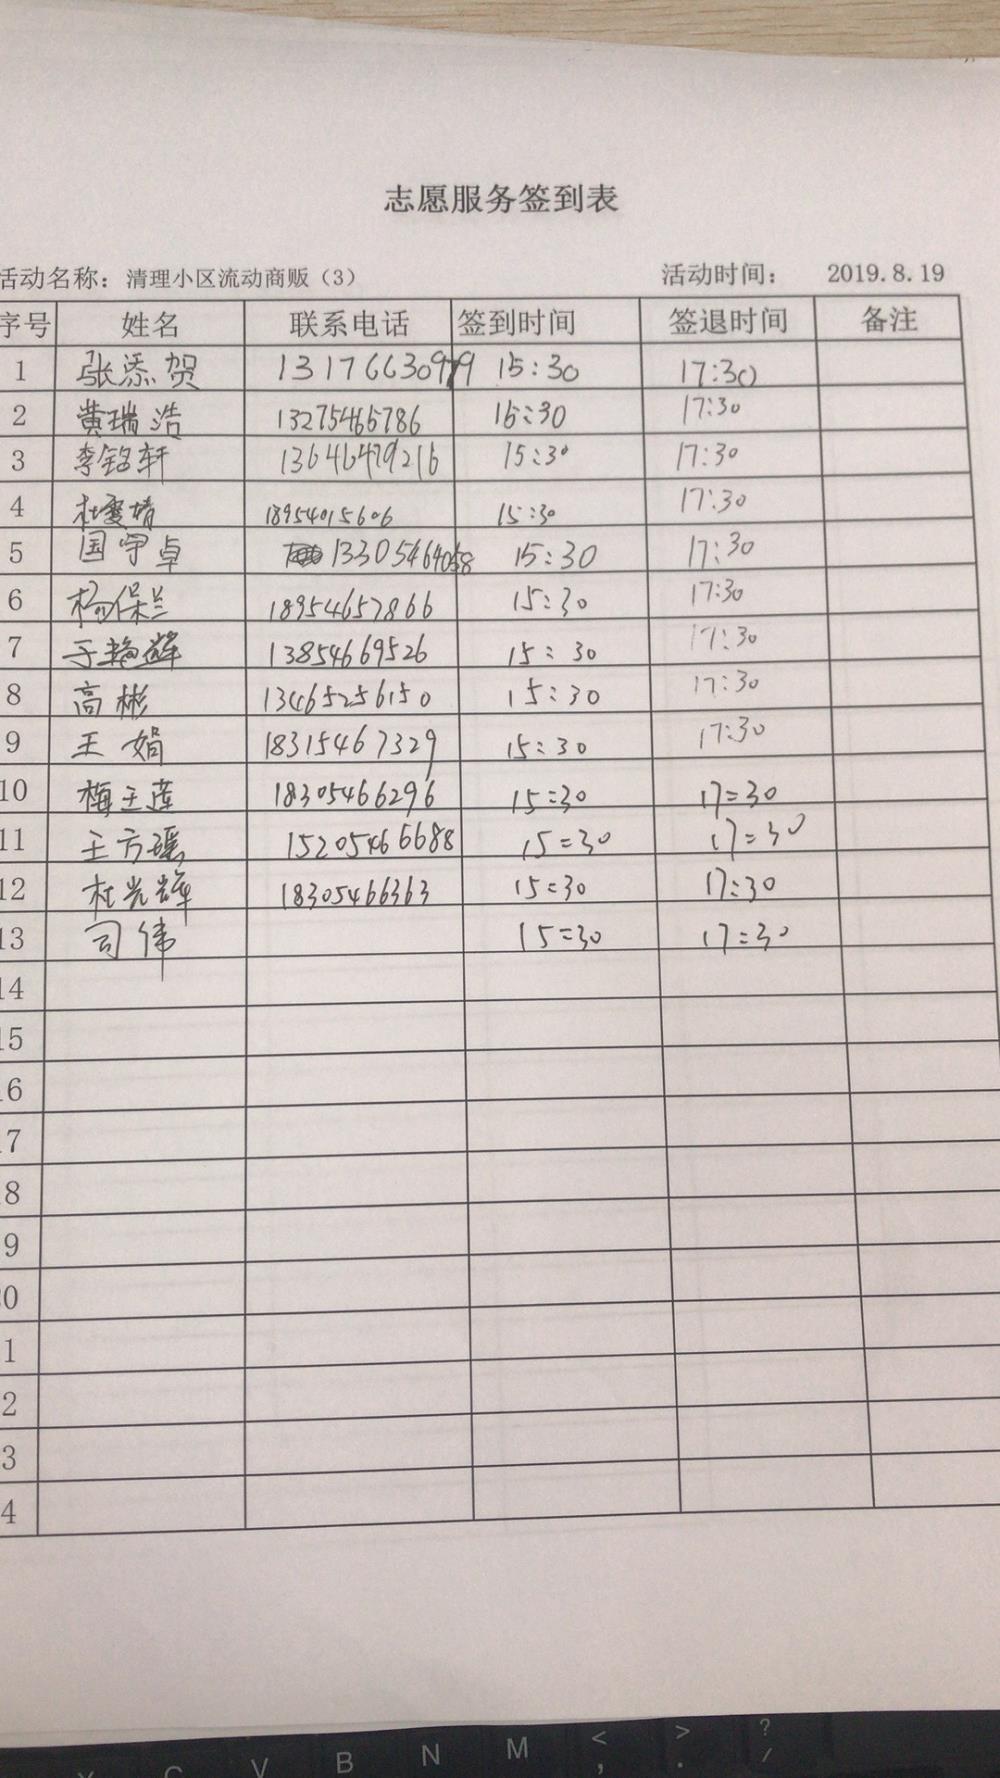 志愿服务签到表
活动名称：清理小区流动商贩（3） 活动时间： 2019.8.19
序号 姓名 联系电话 签到时间 签退时间 备注
1 张添贺 13176630979 15:30 17:30
2 黄瑞浩 13275465786 15:30 17:30
3 李铭轩 13646479216 15:30 17:30
4 18954015606 15:30 17:30
5 国宇卓 13305464058 15:30 17:30
6 杨保兰 18954657866 15:30 17:30
7 于艳辉 13854669526 15:30 17:30
8 高彬 13465256150 15:30 17:30
9 王娟 18315467329 15:30 17:30
10 梅玉莲 18305466296 15:30 17:30
11 王方瑶 15205466688 15:30 17:30
12 杜光辉 18305466363 15:30 17:30
13 司伟 15:30 17:30
14
15
16
17
18
19
20
1
2
3
4
V B N M < , > . ? /